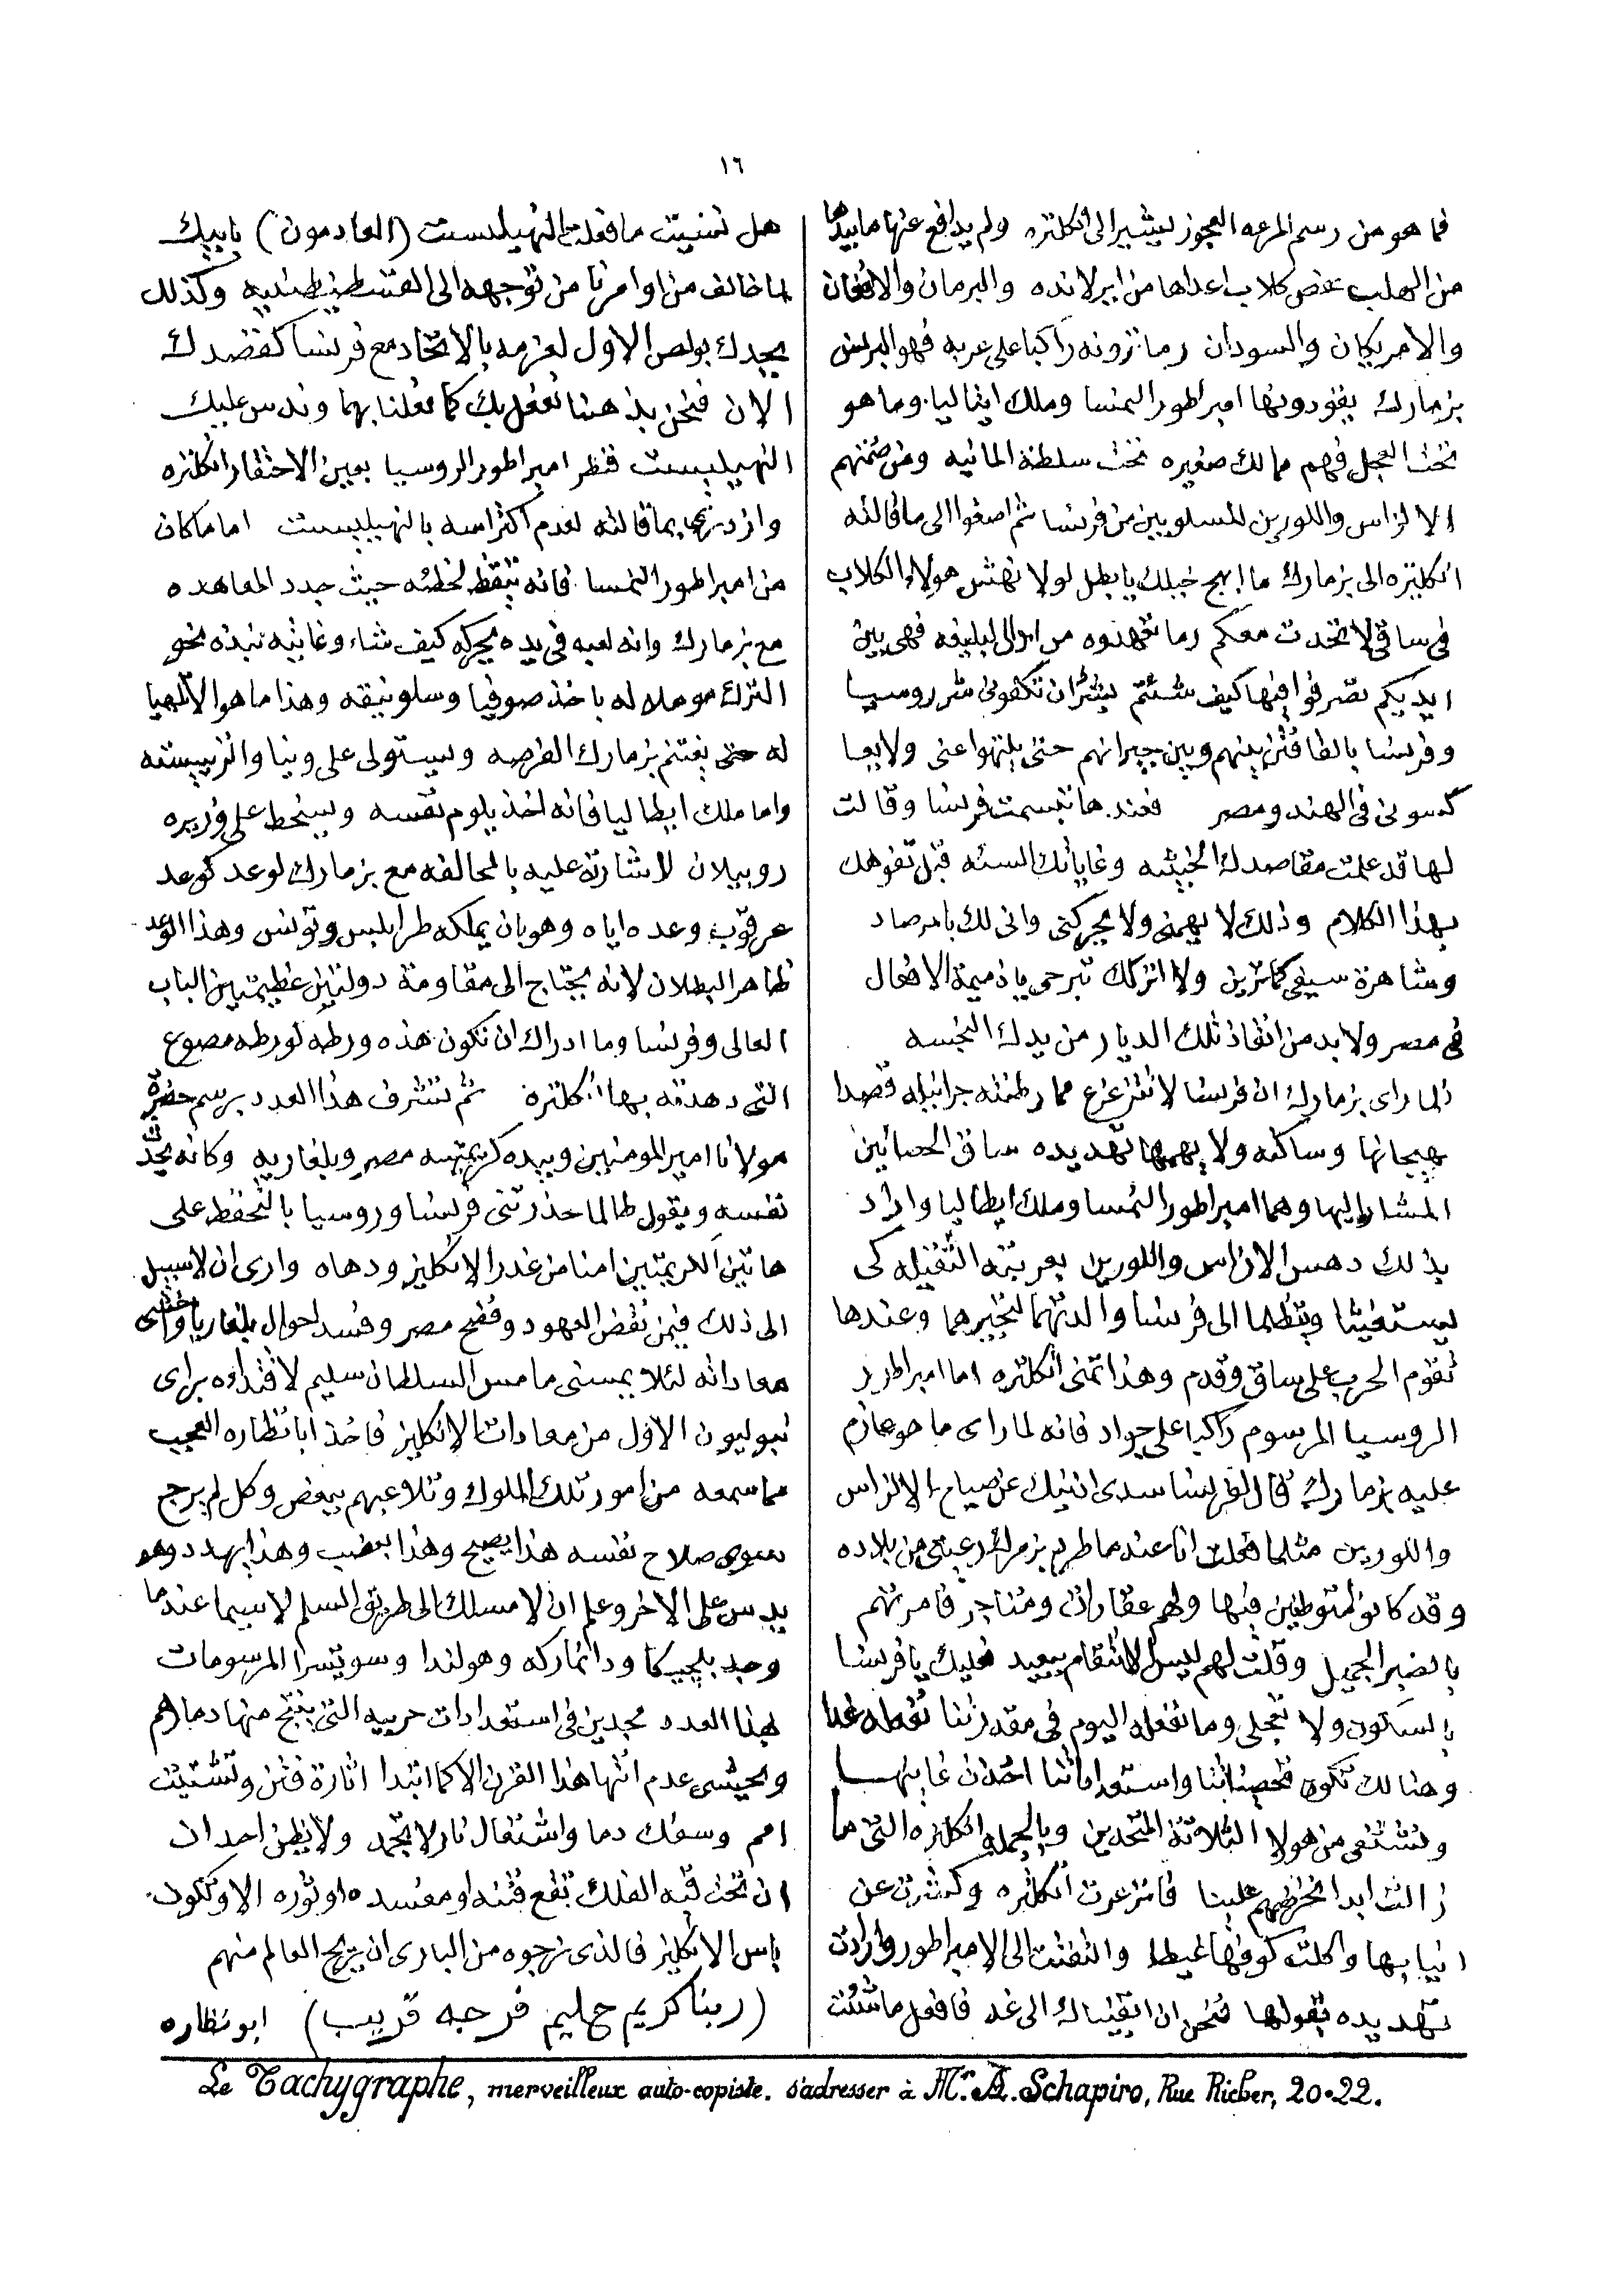 ١٦
فما هو من رسم المرءه العجوز ليشير الى انكلتره ولم يدافع عنها ما بيدها
من الهلب عض كلاب اعداها من ايرلانده والبرمان والافغان
والامريكان والسودان وما ترونه راكبا على عربه فهو البرنس
بزمارك يقودونها امبراطور النمسا وملك ايتاليا وما هو
تحت العجل فهم ممالك صغيره تحت سلطة المانيه ومن ضمنهم
الالزاس واللورين المسلوبين من فرنسا ثم اصغوا الى ما قالته
انكلتره الى بزمارك ما ابهج خيلك يا بطل لولا نهش هولاء الكلاب
فى ساقى لاتحدت معكم وما تعهدوه من اموالى لبليغه فهى بين
ايديكم تصرفوا فيها كيف شئتم بشرط ان تكفونى شر روسيا
وفرنسا بالقا فتن بينهم وبين جيرانهم حتى يلتهوا عنى ولا يعا
كسونى فى الهند ومصر فعندها تبسمت فرنسا وقالت
لها قد علمت مقاصدك الخبيثه وغاياتك السئه قبل تفوهك
بهذا الكلام وذلك لا يهمنى ولا يحركنى وانى لك بالمرصاد
وشاهرة سيفى كما ترين ولا اتركك تبرحى يا ذميمة الافعال
فى مصر ولا بد من انقاذ تلك الديار من يدك النجسه
فلما راى بزمارك ان فرنسا لا تتزعزع مما رطنته جرانيله قصدا
هيجانها وساكنه ولا يهمها تهديده ساق الحصانين
المشار اليها وهما امبراطور النمسا وملك ايطاليا واراد
بذلك دهس الالزاس واللورين بعربته الثقيله كى
يستغيثا ويتظلما الى فرنسا والدتهما لتجيرهما وعندها
تقوم الحرب على ساق وقدم وهذا تمنى انكلتره اما امبراطور
الروسيا المرسوم راكبا على جواد فانه لما راى ما هو عازم
عليه بزمارك قال لفرنسا سدى اذنيك عن صياح الالزاس
واللورين مثلما فعلت انا عندما طرد بزمرك رعيتى من بلاده
وقد كانوا متوطنين فيها ولهم عقارات ومتاجر فامرتهم
بالصبر الجميل وقلت لهم ليس الانتقام ببعيد فعليك يا فرنسا
بالسكون ولا تعجلى وما نفعله اليوم فى مقدرتنا نفعله غدا
وهنالك تكون تحصيناتنا واستعداداتنا اخذت غايتها
ونشتفى من هولا الثلاثة المتحدين وبالجمله انكلتره التى ما
زالت ابدا تحرضهم علينا فانزعرت انكلتره وكشرت عن
انيابها واكلت كفوفها غيظا والتفتت الى الامبراطور وارادت
تهديده بقولها نحن ان ابقيناك الى غد فافعل ما شئت
هل نسيت ما فعلت النهيلست (العادمون) بابيك
لما خالف من اوامرنا من توجهه الى القسطنطينيه وكذلك
بجدك بولص الاول لعزمه بالاتحاد مع فرنسا كقصدك
الان فنحن بذهبنا نفعل بك كما فعلنا بهما وندس عليك
النهيليست فنظر امبراطور الروسيا بعين الاحتقار انكلتره
وازدرى بما قالته لعدم اكتراسه بالنهيليست اما ما كان
من امبراطور النمسا فانه تيقظ لخطئه حيث جدد المعاهده
مع بزمارك وانه لعبه فى يده يحركه كيف شاء وغايته نبذه نحو
الترك موملا له باخذ صوفيا وسلونيقه وهذا ما هو الا تلهيا
له حتى يغتنم بزمارك الفرصه ويستولى على وينا والتريسته
واما ملك ايطاليا فانه اخذ يلوم نفسه ويسخط على وزيره
روبيلان لاشارته عليه بالمحالفه مع بزمارك لوعد كوعد
عرقوب وعده اياه وهو بان يملكه طرابلس وتونس وهذا الوعد
ظاهر البطلان لانه يحتاج الى مقاومة دولتين عظيمتين الباب
العالى وفرنسا وما ادراك ان تكون هذه ورطه كورطه مصوع
التى دهدته بها انكلتره ثم تشرف هذا العدد برسم حضرة
مولانا امير المومنين وبيده كريمتيه مصر وبلغاريه وكانه يحدث
نفسه ويقول طالما حذرتنى فرنسا وروسيا بالتحفظ على
هاتين الكريمتين امنا من غدر الانكليز ودهاه وارى ان لا سبيل
الى ذلك فيمن نقض العهود وفتح مصر وفسد احوال بلغاريا واخشى
معاداته لئلا يمسنى ما مس السلطان سليم لاقتداءه براى
نبوليون الاول من معادات الانكليز فاخذ ابا نظاره العجب
مما سمعه من امور تلك الملوك وتلاعبهم ببعض وكل لم يرج
سوى صلاح نفسه هذا يصيح وهذا يغضب وهذا يهدد وهو
يدس على الاخر وعلم ان لا مسلك الى طريق السلم لاسيما عندما
وجد بلجيكا ودانماركه وهولندا وسويتسرا المرسومات
بهذا العدد مجدين فى استعدادات حربيه التى ينتج منها دمارهم
ويخشى عدم انتها هذا القرن الا كما ابتدا اثارة فتن وتشتيت
امم وسفك دما واشتعال نار لا تخمد ولا يظن احد ان
ان تحت قبه الفلك تقع فتنه او مفسده او ثوره الا وتكون
باس الانكليز فالذى نرجوه من البارى ان يريح العالم منهم
(ربنا كريم حليم فرجه قريب) ابو نظاره
Le Tachygraphe, merveilleux auto-copiste. s'adresser à Mr. A. Schapiro, Rue Richer, 20-22.